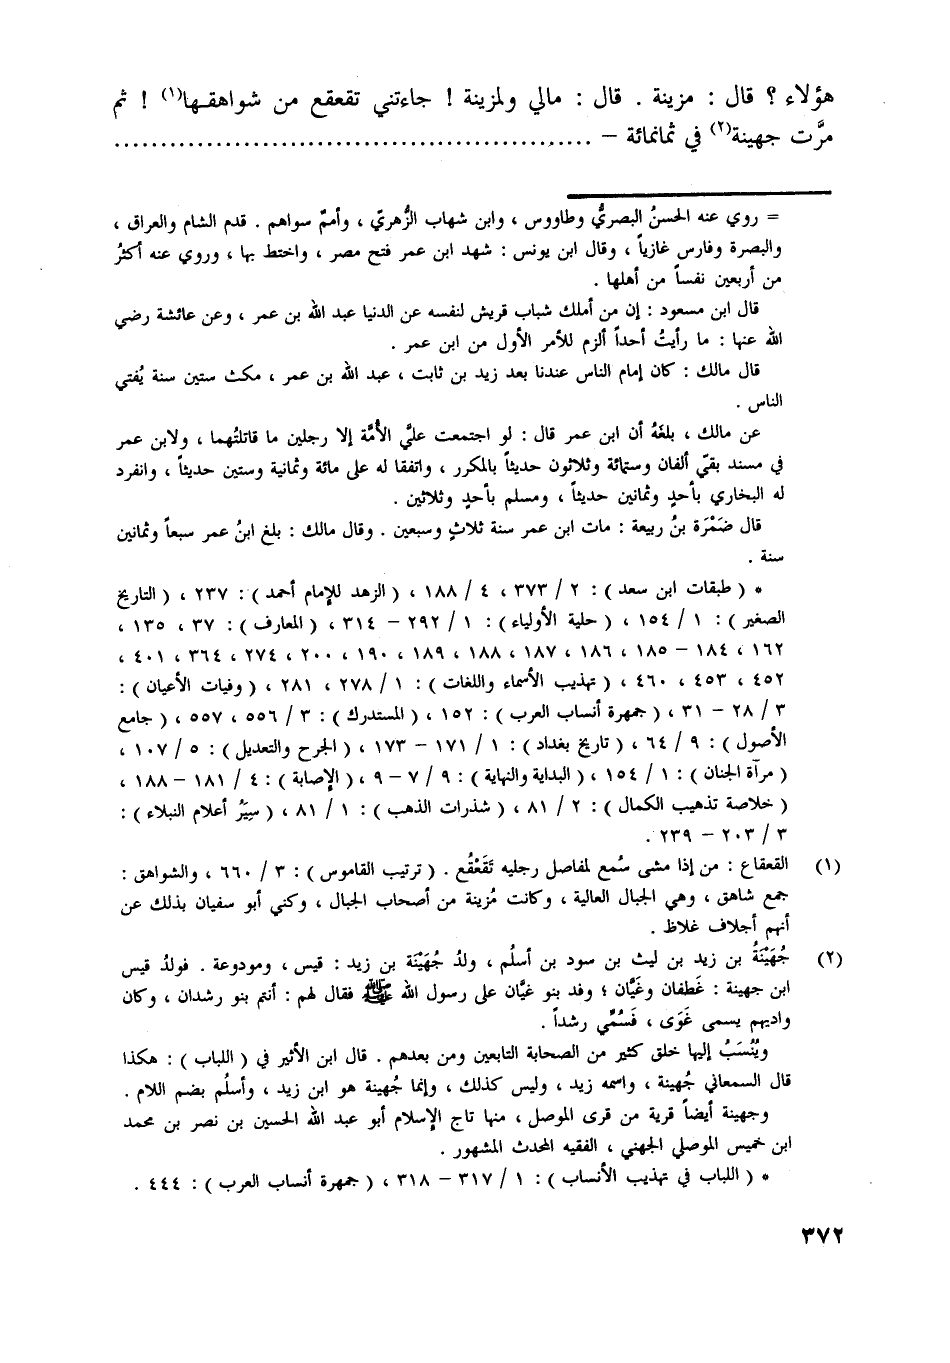 هؤلاء ؟ قال : مزينة . قال : مالي ولمزينة ! جاءتني تقعقع من شواهقـها(١) ! ثم
مرَّت جهينة(٢) في ثمانمائة – ....................................................
= روي عنه الحسنُ البصريُّ وطاووس ، وابن شهاب الزُّهريّ ، وأممٌ سواهم . قدم الشام والعراق ،
والبصرة وفارس غازياً ، وقال ابن يونس : شهد ابن عمر فتح مصر ، واختط بها ، وروي عنه أكثرُ
من أربعين نفساً من أهلها .
قال ابن مسعود : إن من أملك شباب قريش لنفسه عن الدنيا عبد الله بن عمر ، وعن عائشة رضي
الله عنها : ما رأيتُ أحداً ألزم للأمر الأول من ابن عمر .
قال مالك : كان إمام الناس عندنا بعد زيد بن ثابت ، عبد الله بن عمر ، مكث ستين سنة يُفتي
الناس .
عن مالك ، بلغَهُ أن ابن عمر قال : لو اجتمعت عليَّ الأُمَّة إلا رجلين ما قاتلتُهما ، ولابن عمر
في مسند بقيّ ألفان وستمائة وثلاثون حديثاً بالمكرر ، واتفقا له على مائة وثمانية وستين حديثاً ، وانفرد
له البخاري بأحدٍ وثمانين حديثاً ، ومسلم بأحدٍ وثلاثين .
قال ضَمْرَة بنُ ربيعة : مات ابن عمر سنة ثلاثٍ وسبعين . وقال مالك : بلغ ابنُ عمر سبعاً وثمانين
سنة .
* ( طبقات ابن سعد ) : ٢ / ٣٧٣ ، ٤ / ١٨٨ ، ( الزهد للإمام أحمد ) : ٢٣٧ ، ( التاريخ
الصغير ) : ١ / ١٥٤ ، ( حلية الأولياء ) : ١ / ٢٩٢ – ٣١٤ ، ( المعارف ) : ٣٧ ، ١٣٥ ،
١٦٢ ، ١٨٤ – ١٨٥ ، ١٨٦ ، ١٨٧ ، ١٨٨ ، ١٨٩ ، ١٩٠ ، ٢٠٠ ، ٢٧٤ ، ٣٦٤ ، ٤٠١ ،
٤٥٢ ، ٤٥٣ ، ٤٦٠ ، ( تهذيب الأسماء واللغات ) : ١ / ٢٧٨ ، ٢٨١ ، ( وفيات الأعيان ) :
٣ / ٢٨ – ٣١ ، ( جمهرة أنساب العرب ) : ١٥٢ ، ( المستدرك ) : ٣ / ٥٥٦ ، ٥٥٧ ، ( جامع
الأصول ) : ٩ / ٦٤ ، ( تاريخ بغداد ) : ١ / ١٧١ – ١٧٣ ، ( الجرح والتعديل ) : ٥ / ١٠٧ ،
( مرآة الجنان ) : ١ / ١٥٤ ، ( البداية والنهاية ) : ٩ / ٧ – ٩ ، ( الإصابة ) : ٤ / ١٨١ – ١٨٨ ،
( خلاصة تذهيب الكمال ) : ٢ / ٨١ ، ( شذرات الذهب ) : ١ / ٨١ ، ( سِيَرُ أعلام النبلاء ) :
٣ / ٢٠٣ – ٢٣٩ .
(١) القعقاع : من إذا مشى سُمع لمفاصل رجليه تَقَعْقُع . ( ترتيب القاموس ) : ٣ / ٦٦٠ ، والشواهق :
جمع شاهق ، وهي الجبال العالية ، وكانت مُزينة من أصحاب الجبال ، وكني أبو سفيان بذلك عن
أنهم أجلاف غلاظ .
(٢) جُهَيْنَةُ بن زيد بن ليث بن سود بن أسلُم ، ولدُ جُهَيْنَة بن زيد : قيس ، ومودوعة . فولدُ قيس
ابن جهينة : غَطفان وغَيَّان ؛ وفد بنو غيَّان على رسول الله ﷺ فقال لهم : أنتم بنو رشدان ، وكان
واديهم يسمى غَوَى ، فَسُمِّي رشداً .
ويُنْسَبُ إليها خلق كثير من الصحابة التابعين ومن بعدهم . قال ابن الأثير في ( اللباب ) : هكذا
قال السمعاني جُهينة ، واسمه زيد ، وليس كذلك ، وإنما جُهينة هو ابن زيد ، وأسلُم بضم اللام .
وجهينة أيضاً قرية من قرى الموصل ، منها تاج الإسلام أبو عبد الله الحسين بن نصر بن محمد
ابن خميس الموصلي الجهني ، الفقيه المحدث المشهور .
* ( اللباب في تهذيب الأنساب ) : ١ / ٣١٧ – ٣١٨ ، ( جمهرة أنساب العرب ) : ٤٤٤ .
٣٧٢